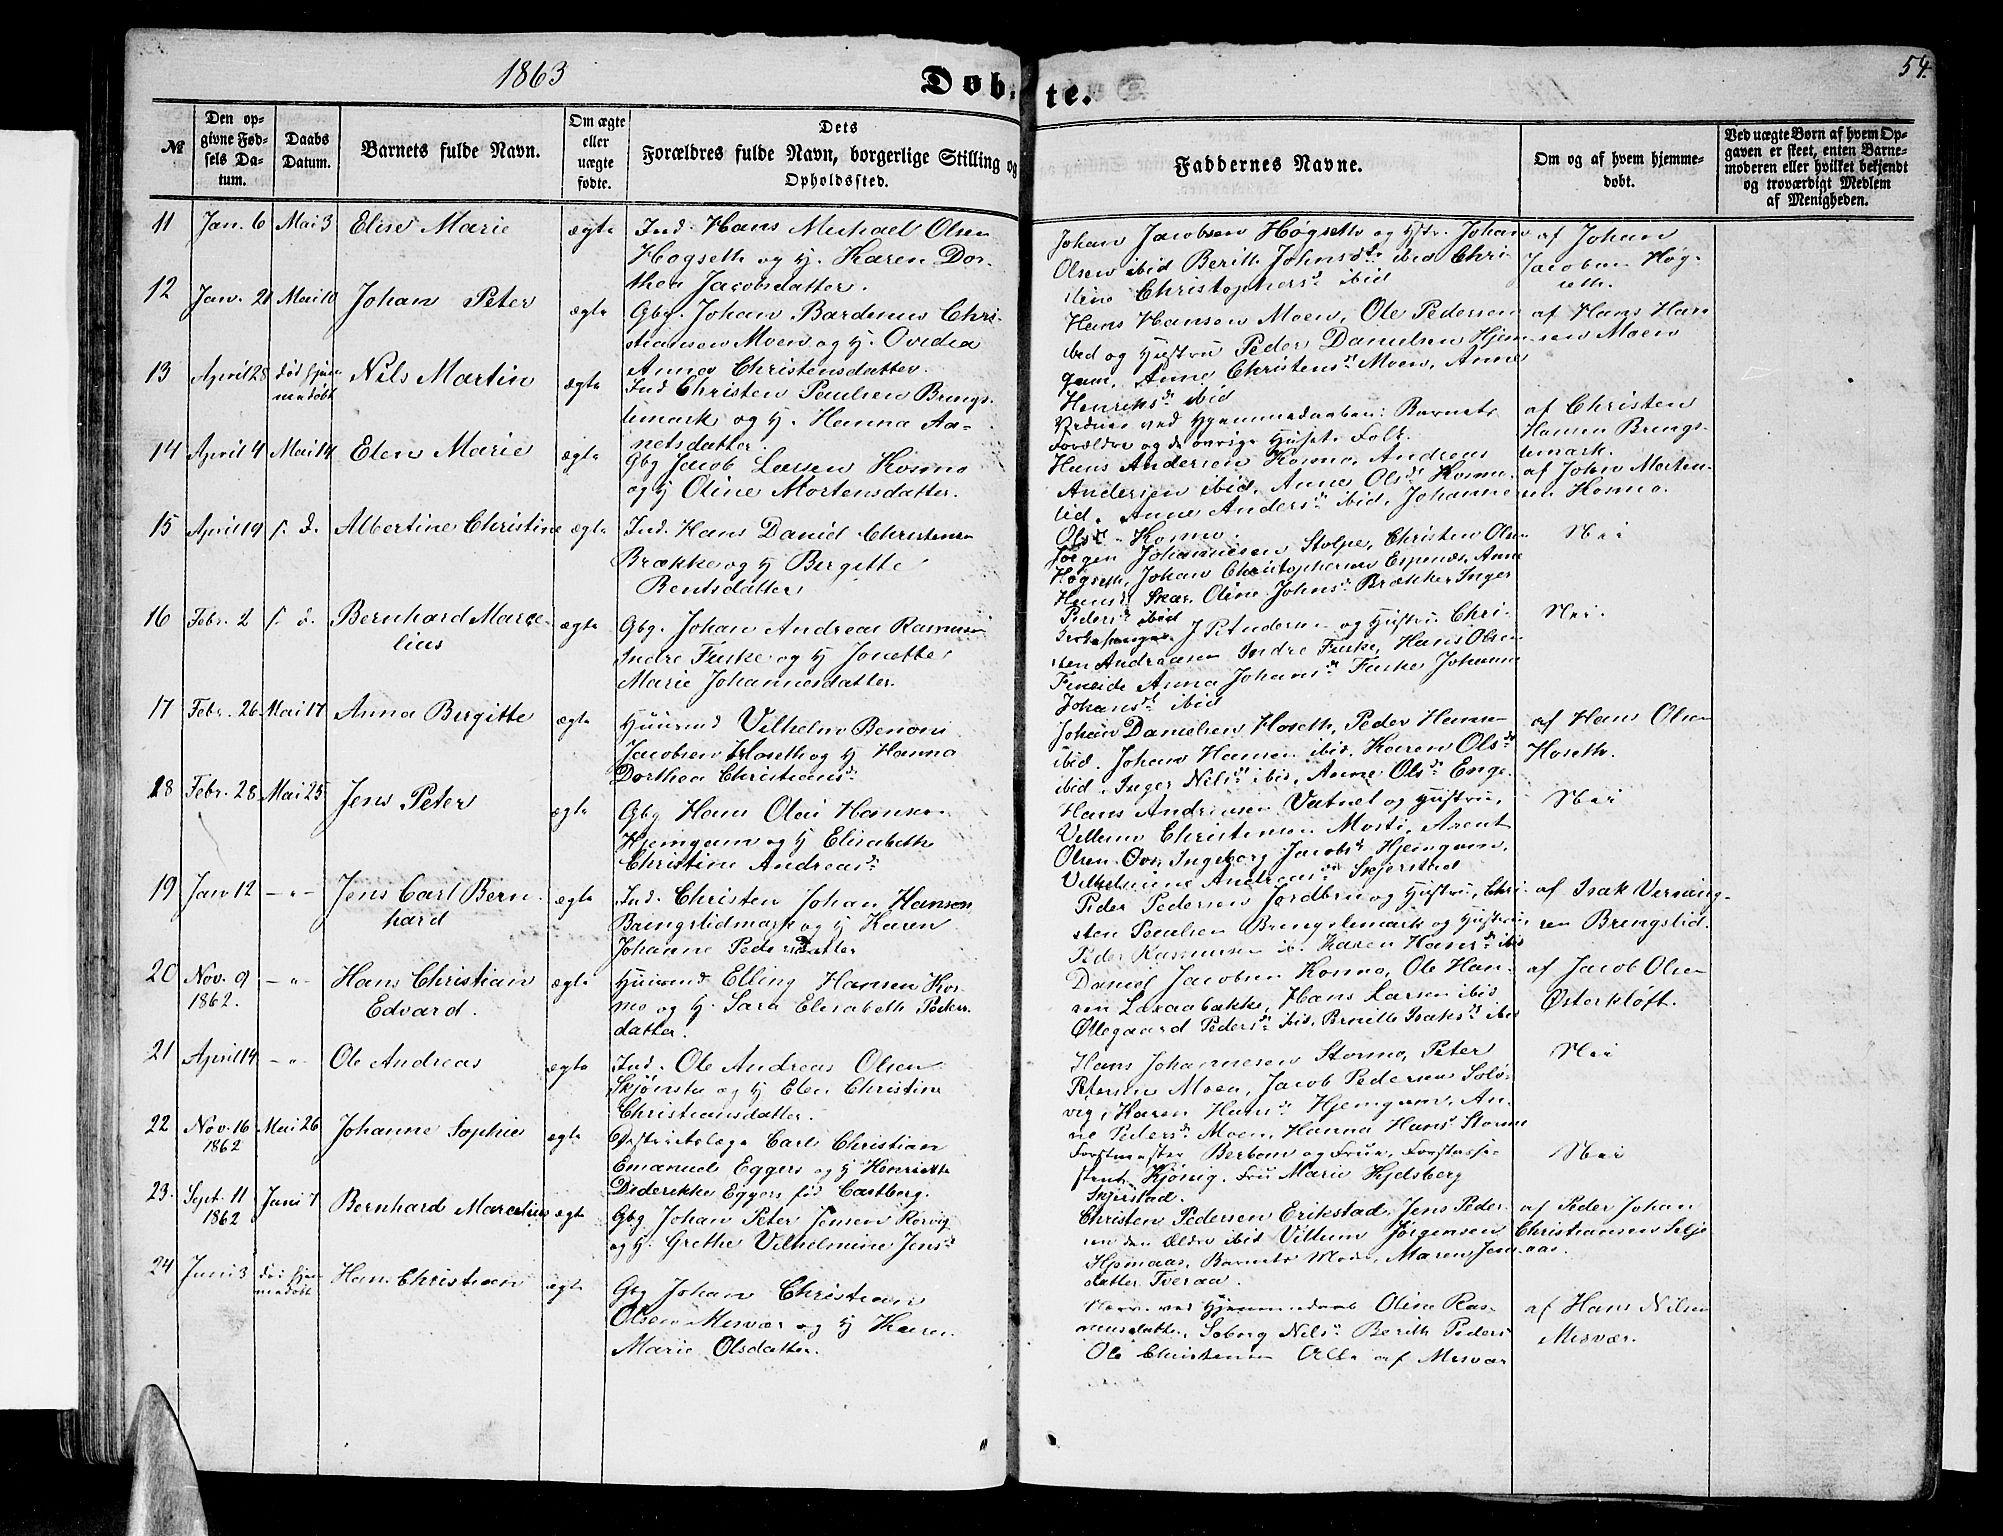 1863
Døbte.
54.
№
Den opgivne Fødsels Datum.
Daabs Datum.
Barnets fulde Navn.
Om ægte eller uægte fødte.
Dets Forældres fulde Navn, borgerlige Stilling og Opholdssted.
Faddernes Navne.
Om og af hvem hjemmedøbt.
Ved uægte Børn af hvem Opgaven er skeet, enten Barnemoderen eller hvilket bekjendt og troværdigt Medlem af Menigheden.
11 Jan. 6 Mai 3 Elise Marie ægte Ind. Hans Michael Olsen
Høgseth og H. Karen Dor-
thea Jacobsdatter.
Johan Jacobsen Høgseth og Hstr. Johan
Olsen ibid Berith Johnsdr ibid Chri-
stine Christophersd ibid
af Johan
Jacobsen Høg-
seth.
12 Jan. 21 Mai 10 Johan Peter ægte Gbg. Johan Bardinus Chri-
stiansen Moen og H. Ovidia
Anna Christensdatter.
Hans Hansen Moen, Ole Pedersen
ibid og Hustru Peder Danielsen Hjem-
gam, Anne Christensd Moen, Anne
Henriksd ibid
af Hans Han-
sen Moen
13 April 28 død hjem-
medøbt Nils Martin ægte Ind Christen Paulsen Brings-
limark og H. Hanna Aa-
netsdatter.
ved Hjemmedaaben: Barnets
Forældre og de øvrige Husets Folk.
af Christen
Hansen Brings-
limark.
14 April 4 Mai 14 Elen Marie ægte Gbg Jacob Larsen Kosmo
og H Oline Mortensdatter.
Hans Andersen Kosmo, Andreas
Andersen ibid. Anne Olsd Kosmo
Anne Andersd ibid, Johanne
Olsd Kosmo.
af John Morten-
sen Kosmo.
15 April 19 s. d. Albertine Christine ægte Ind. Hans Daniel Christensen
Brække og H Bergitte
Bentsdatter
Jørgen Johannesen Stolpe, Christen Olsen
Høgseth, Johan Christophersen Espenæs, Anne
Hansd Skar, Oline Johnsd Brække Inger
Pedersd ibid
Nei
16 Febr. 2 s. d. Bernhard Marce-
lius ægte Gbg. Johan Andreas Rasmusen
Indre Fuske og H Jonette
Marie Johannesdatter.
Kirkesanger J Pt Andersen og Hustru Chri-
sten Andreasen Indre Fuske, Hans Olsen
Fineide Anna Johansd Fuske Johanna
Johansd ibid
Nei.
17 Febr. 26 Mai 17 Anna Birgitte ægte Huusmd Vilhelm Benoni
Jacobsen Hoseth og H Hanna
Dorthea Christiansd
Johan Danielsen Hoseth, Peder Hansen
ibid. Johan Hansen ibid. Karen Olsd
ibid, Inger Nilsd ibid, Anne Olsd Enge
af Hans Olsen
Hoseth.
18 Febr. 28 Mai 25 Jens Peter ægte Gbg Hans Olai Hansen
Hjemgam og H Elisabeth
Christine Andreasd
Hans Andreasen Vatnet og Hustru,
Vellum Christensen Mosti, Arent
Olsen Ingeborg Jacobsd Hjemgam,
Vilhelmine Andreasd Skjerstad
Nei
19 Jan 12 - " - Jens Carl Bern-
hard ægte Ind. Christen Johan Hansen
Bringslidmark og H Karen
Johanne Pedersdatter
Peder Pedersen Jordbru og Hustru, Chri-
sten Paulsen Bringslimark og Hustru
Peder Rasmussen ib. Karen Hansd ibid
af Isak Verning-
sen Bringslid.
20 Nov. 9
1862. - " - Hans Christian
Edvard. ægte Huusmd Elling Hansen Kos-
mo og H. Sara Elisabeth Peder-
datter.
Daniel Jacobsen Kosmo, Ole Han-
sen Laxaabakke, Hans Larsen ibid
Ollegaard Pedersd ibid, Berille Isaksd ibid
af Jacob Olsen
Østerkløft.
21 April 14 - " - Ole Andreas ægte Ind. Ole Andreas Olsen
Skjønsta og H Elen Christine
Christiansdatter.
Hans Johannesen Stormo, Peter
Petersen Moen, Jacob Pedersen Solø-
vig, Karen Hansd Hjemgam, An-
ne Pedersd Moen, Hanna Hansd Stormo
Nei
22 Nov. 16
1862 Mai 26 Johanne Sophie ægte Districtslæge Carl Christian
Emanuel Eggers og H Henriette
Diderikke Eggers fød Castberg.
Forstmester Berbom og Frue, Forstassi-
stent Kjønig. Fru Marie Kjelsberg
Skjerstad.
Nei
23. Sept. 11
1862 Juni 7 Bernhard Marcelius ægte Gbg Johan Peter Jensen Rørvig
og H. Grethe Vilhelmine Jensd
Christen Pedersen Erikstad, Jens Peder-
sen den Ældre ibid Villum Jørgensen
Hjemaas, Barnets Moder, Maren Jens-
datter Tveraa.
af Peder Johan
Christiansen Selje-
aas.
24 Juni 3 død hjem-
medøbt Hans Christian ægte Gbg Johan Christian
Olsen Misvær og H Karen
Marie Olsdatter.
ved Hjemmedaab Oline Ras-
musdatter, Soborg Nilsd Berith Pedersd
Ole Christensen Alle af Misvær
af Hans Nilsen
Misvær.